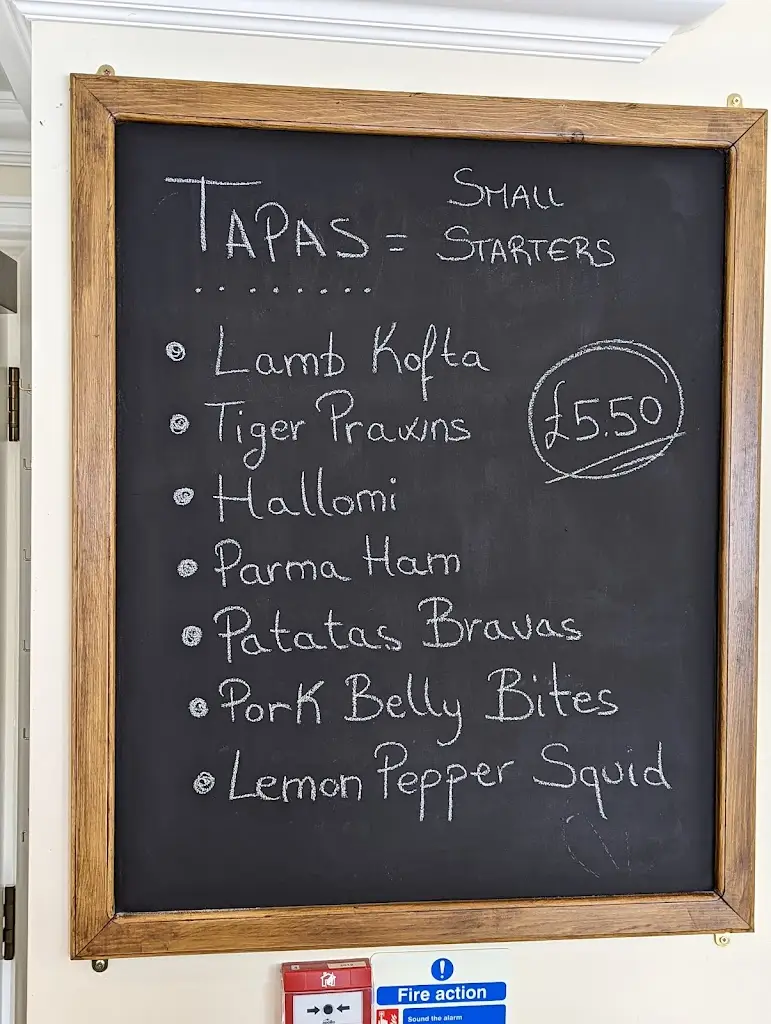 TAPAS = SMALL STARTERS
Lamb Kofta
Tiger Prawns
£5.50
Hallomi
Parma Ham
Patatas Bravas
Pork Belly Bites
Lemon Pepper Squid
Fire action
Sound the alarm